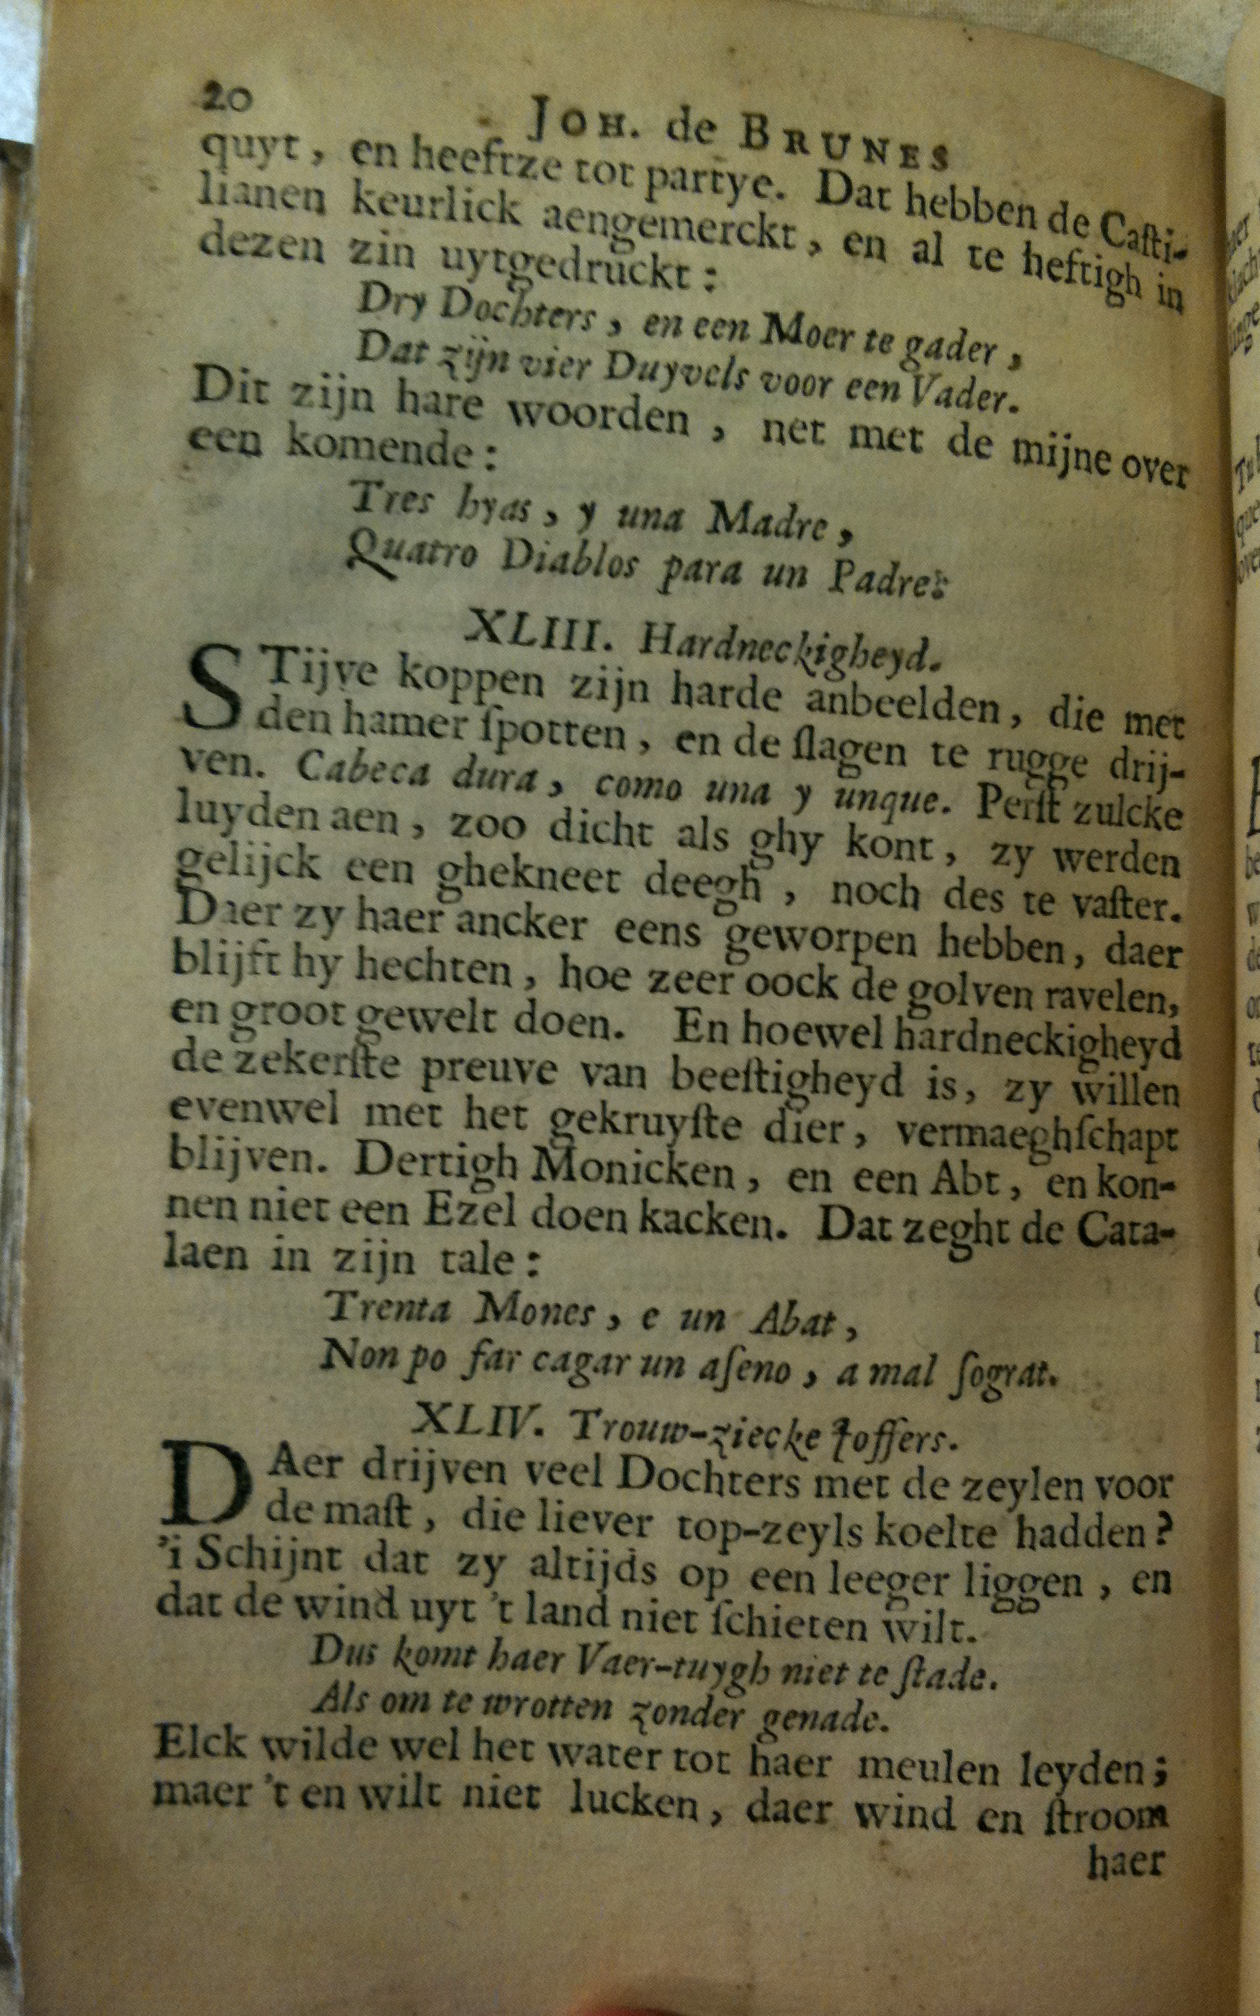 20
JOH. de BRUNES
quyt, en heeftze tot partye. Dat hebben de Caſti-
lianen keurlick aengemerckt, en al te heftigh in
dezen zin uytgedruckt:
Dry Dochters, en een Moer te gader,
Dat zijn vier Duyvels voor een Vader.
Dit zijn hare woorden, net met de mijne over
een komende:
Tres hyas, y una Madre,
Quatro Diablos para un Padre:
XLIII. Hardneckigheyd.
STijve koppen zijn harde anbeelden, die met
den hamer ſpotten, en de ſlagen te rugge drij-
ven. Cabeca dura, como una y unque. Perſt zulcke
luyden aen, zoo dicht als ghy kont, zy werden
gelijck een ghekneet deegh, noch des te vaſter.
Daer zy haer ancker eens geworpen hebben, daer
blijft hy hechten, hoe zeer oock de golven ravelen,
en groot gewelt doen. En hoewel hardneckigheyd
de zekerſte preuve van beeſtigheyd is, zy willen
evenwel met het gekruyſte dier, vermaeghſchapt
blijven. Dertigh Monicken, en een Abt, en kon-
nen niet een Ezel doen kacken. Dat zeght de Cata-
laen in zijn tale:
Trenta Mones, e un Abat,
Non po far cagar un aſeno, a mal ſograt.
XLIV. Trouw-ziecke Joffers.
DAer drijven veel Dochters met de zeylen voor
de maſt, die liever top-zeyls koelte hadden?
'i Schijnt dat zy altijds op een leeger liggen, en
dat de wind uyt 't land niet ſchieten wilt.
Dus komt haer Vaer-tuygh niet te ſtade.
Als om te wrotten zonder genade.
Elck wilde wel het water tot haer meulen leyden;
maer 't en wilt niet lucken, daer wind en ſtroom
haer